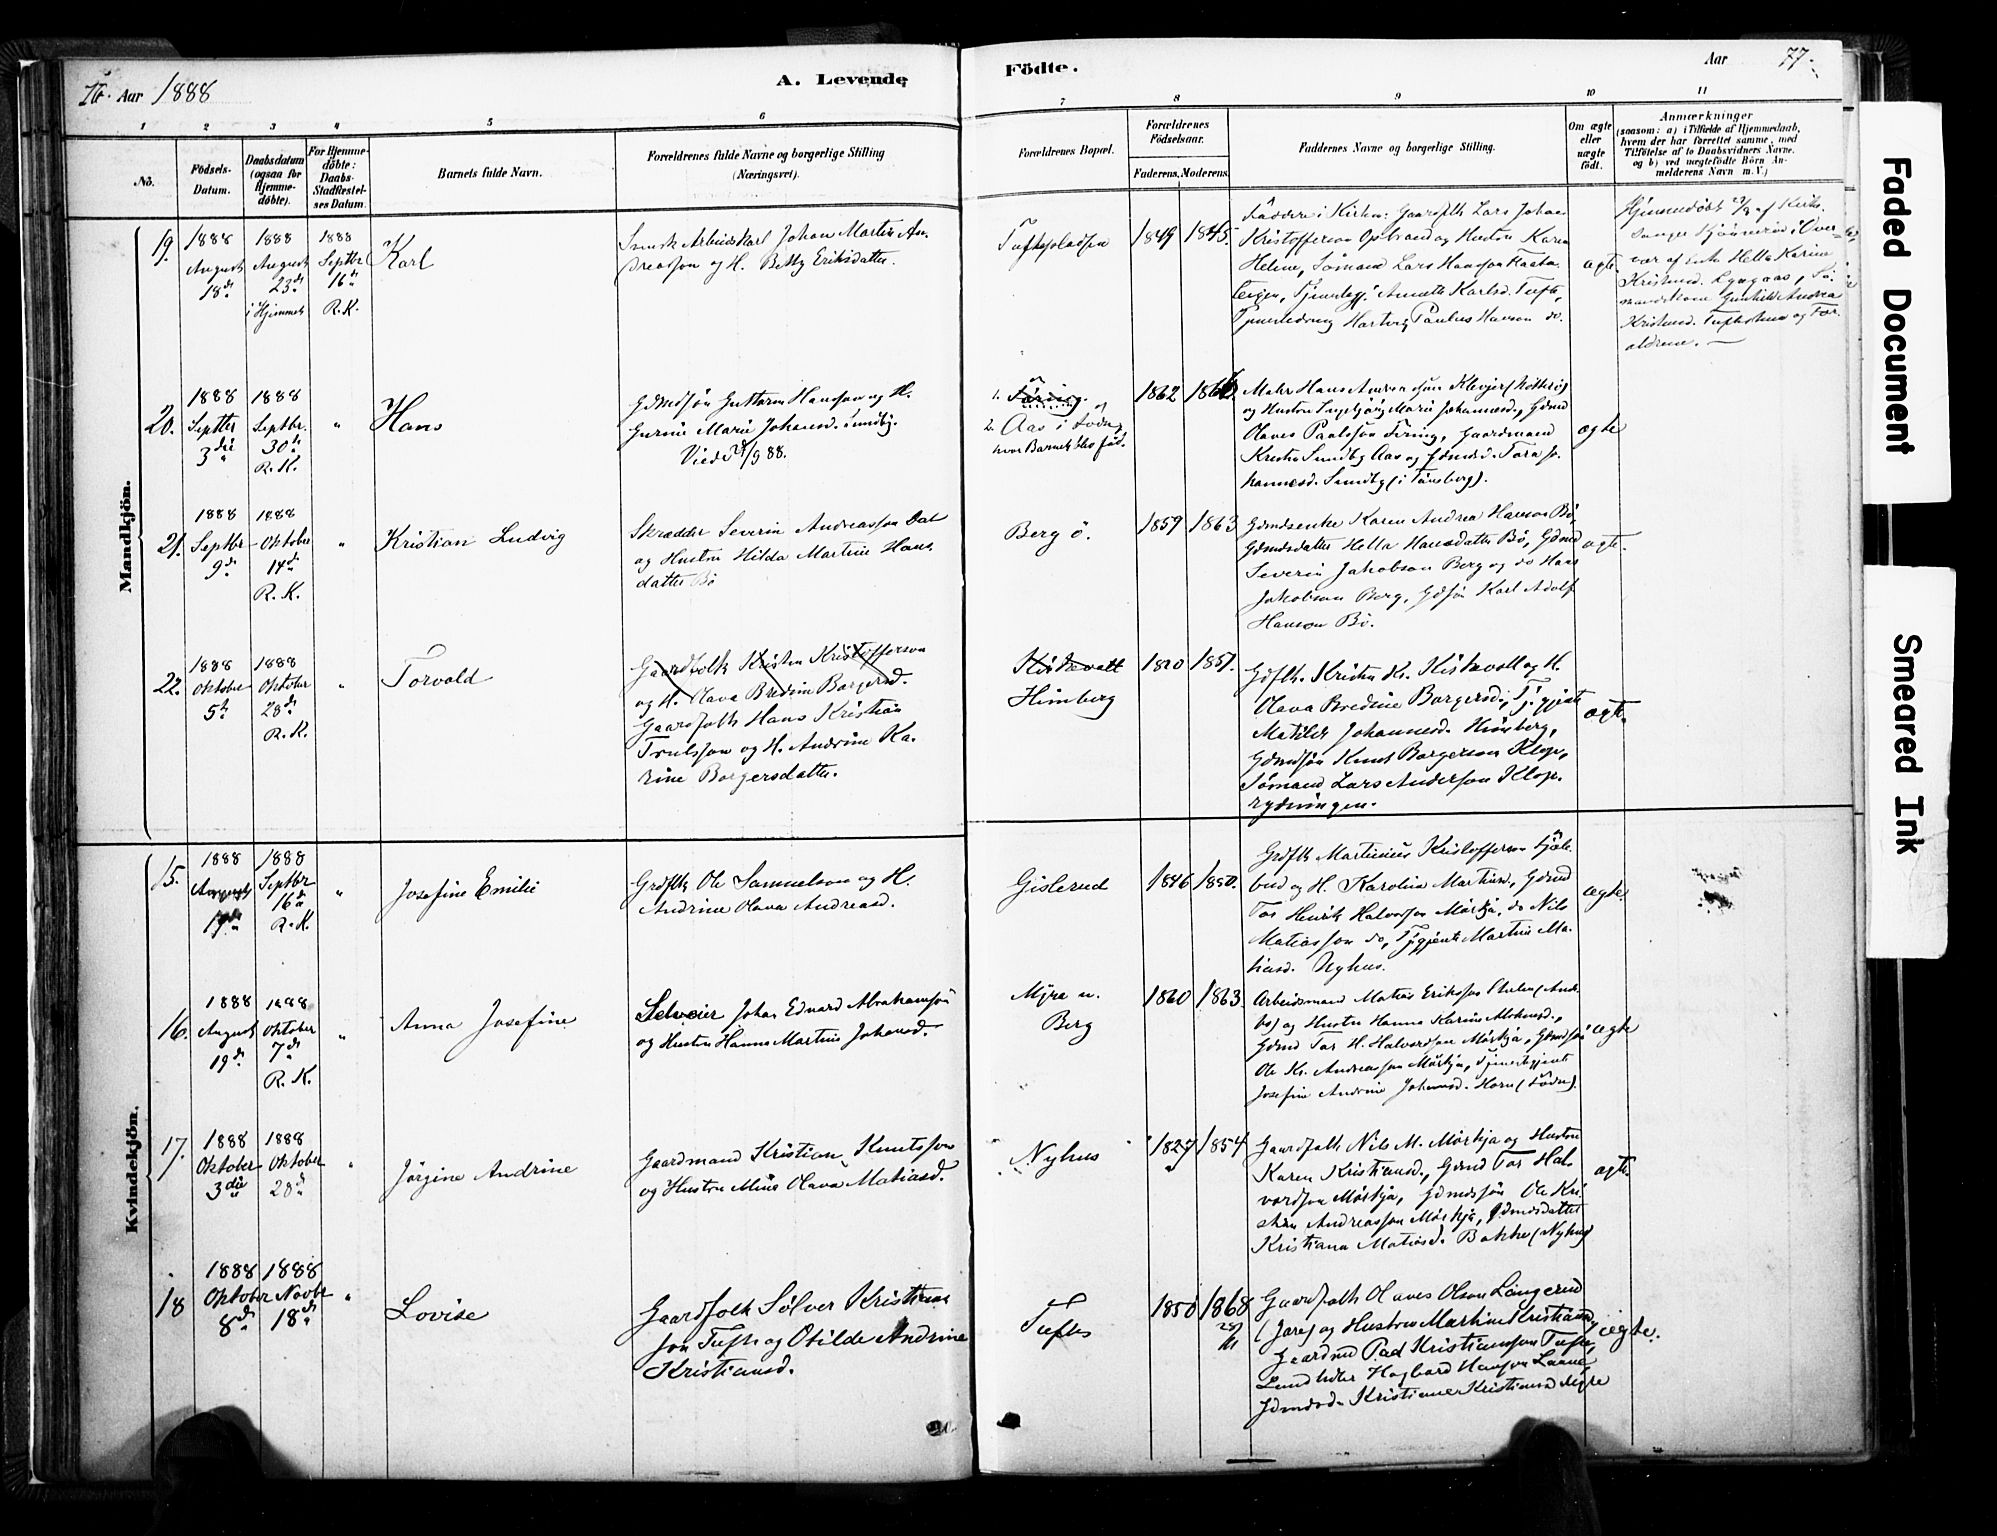 Aar 1888
A. Levende
Födte.
Aar
77.
1
2
3
4
5
6
7
8
9
10
11
No.
Födsels-
Datum.
Daabsdatum
(ogsaa for
Hjemme-
döbte).
For Hjemme-
döbte:
Daabs-
Stadfæstel-
ses Datum.
Barnets fulde Navn.
Forældrenes fulde Navne og borgerlige Stilling
(Næringsvei).
Forældrenes Bopæl.
Forældrenes
Födselsaar.
Faderens.
Moderens.
Faddernes Navne og borgerlige Stilling.
Om ægte
eller
uægte
födt.
Anmærkninger
(saasom: a) i Tilfælde af Hjemmedaab,
hvem der har forrettet samme, med
Tilföielse af to Daabsvidners Navne,
og b) ved uægtefödte Börn An-
melderens Navn m. V.)
Mandkjön.
19.
1888
August
18de
1888
August
23de
i Hjemmet
1888
Septbr
16de
R. K.
Karl
Svensk Arbeidskarl Johan Martin An-
dreasson og H. Betty Eriksdatter.
1849
1845.
Faddere i Kirken: Gaardfolk Lars Johan
Kristofferson Opstrand og Hustru Karen
Helene, Sømand Lars Hanson
Annette Karlsd. Tufte,
Hartvig Paulus Hanson do.
ægte
Hjemmedøbt
sanger
vær af Enke Hella Karine
Kristensd.
Andrea
Kristensd. og For-
ældrene.
20.
1888
Septbr
3die
1888
Septbr.
30te
R. K.
"
Hans
Gdmdsøn Guttorm Hansson og H.
Gurine Marie Johansd. Sundby.
Viede 9/9 88.
1.
2. Aas i
hvor Barnet blev fød.
1862
Maler Hans
og Hustru Ingeborg Marie Johannesd, Gdmd
Olaves Paulsson Firing, Gaardmand
Kristen Sundby Aas og Gdmdsd. Tora Jo-
hannesd. Sundby (i Tønsberg).
ægte
21.
1888
Septbr
9de
1888
Oktober
14de
R. K.
"
Kristian Ludvig
Skrædder Severin Andreasson Dal
og Hustru Hilda Martine Hans
datter Bø
Berg ö.
1859
1863
Gdmdsenke Karen Andrea Hanson Bø,
Gdmdsdatter Hella Hansdatter Bø, Gdmd
Severin Jakobson Berg og do Hans
Jakobson Berg, Gdsøn Karl Adolf
Hanson Bø.
ægte.
22.
1888
Oktober
5te
1888
Oktober
28de
R. K.
"
Torvald
Gaardfolk Kristen Kristofferson
og H. Olava Bredine Borgersd.
Gaardfolk Hans Kristian
Trulsson og H. Andrine Ka-
rine Borgersdatter.
Himberg
1851.
Gdflk. Kristen Kr. og H.
Olava Bredine Borgersd., Tj.gjente
Matilde Johannesd. Himberg,
Gdmdsøn Knut Borgerson Klop,
Sømand Lars Anderson Klop-
rydningen.
ægte.
Kvindekjön.
15.
1888
August
17de
1888
Septbr
16de
R. K.
"
Josefine Emilie
Grdflk Ole Samuelson og H.
Andrine Olava Andreasd.
Gislerud
1846
1850.
Grdflk Martinius Kristofferson
og H. Karoline Martinsd., Gdmd
Tor Henrik Halvorsson Mørkja, do Nils
Matiasson do, Tj.gjente Martine Ma-
tiasd. Nyhus.
ægte.
16.
1888
August
19de
1888
Oktober
7de
R. K.
"
Anna Josefine
Selveier Johan Edvard Abrahamsøn
og Hustru Hanna Martine Johansd.
Myra u.
Berg
1860
1863.
Arbeidsmand Matias Eriksson
og Hustru Hanna Karine
Gdmd Tor H. Halvordson Mørkja, Gdmdsøn
Ole Kr. Andreasson Mørkja, Tjenestgjente
Josefine Andrine Johannesd. Horn
ægte
17.
1888
Oktober
3die
1888
Oktober
28de
"
Jörgine Andrine
Gaardmand Kristian Knutsson
og Hustru Mina Olava Matiasd.
Nyhus
1827
1854.
Gaardfolk Nils M. Mørkja og Hustru
Karen Kristiansd., Gdmd Tor Hal-
vordson Mørkja, Gdmdsøn Ole Kri-
stian Andreasson Mørkja, Gdmdsdatter
Kristiana Matiasd. Bakke (Nyhus)
ægte.
18
1888
Oktober
8de
1888
Novbr
18de
"
Lovise
Gaardfolk Sölver Kristian-
son Tufte og Otilde Andrine
Kristiansd.
Tufte
1850
1868
Gaardfolk Olaves Olson Langerud
(Jare) og Hustru Martine Kristiansd,
Gaardmd Paul Kristianson Tufte,
Hagbard Hanson
Kristiane Kristiansd
ægte.
Faded Document
Smeared Ink